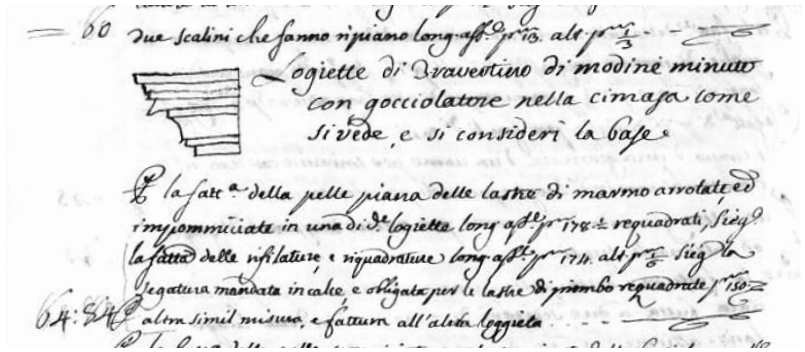 60 due scalini che fanno ripiano long. ass.e p.mi 13. alt. p.mi 1/3
Logiette di Travertino di modine minuto
con gocciolatore nella cimasa come
si vede, e si consideri la base
la fatt.a della pelle piana delle lastre di marmo arrotate, ed
impomiciate in una di d.e logiette long. ass.e p.mi 178 1/2 requadrati, Sieg.
la fattā delle rifilature, e riquadrature long. ass.e p.mi 174. alt. p.mi 1/6 Sieg. la
segatura mandata in calce, e obligata per le lastre di piombo requadrate p.mi 150
64:84 altra simil misura, e fattura all'altra loggieta